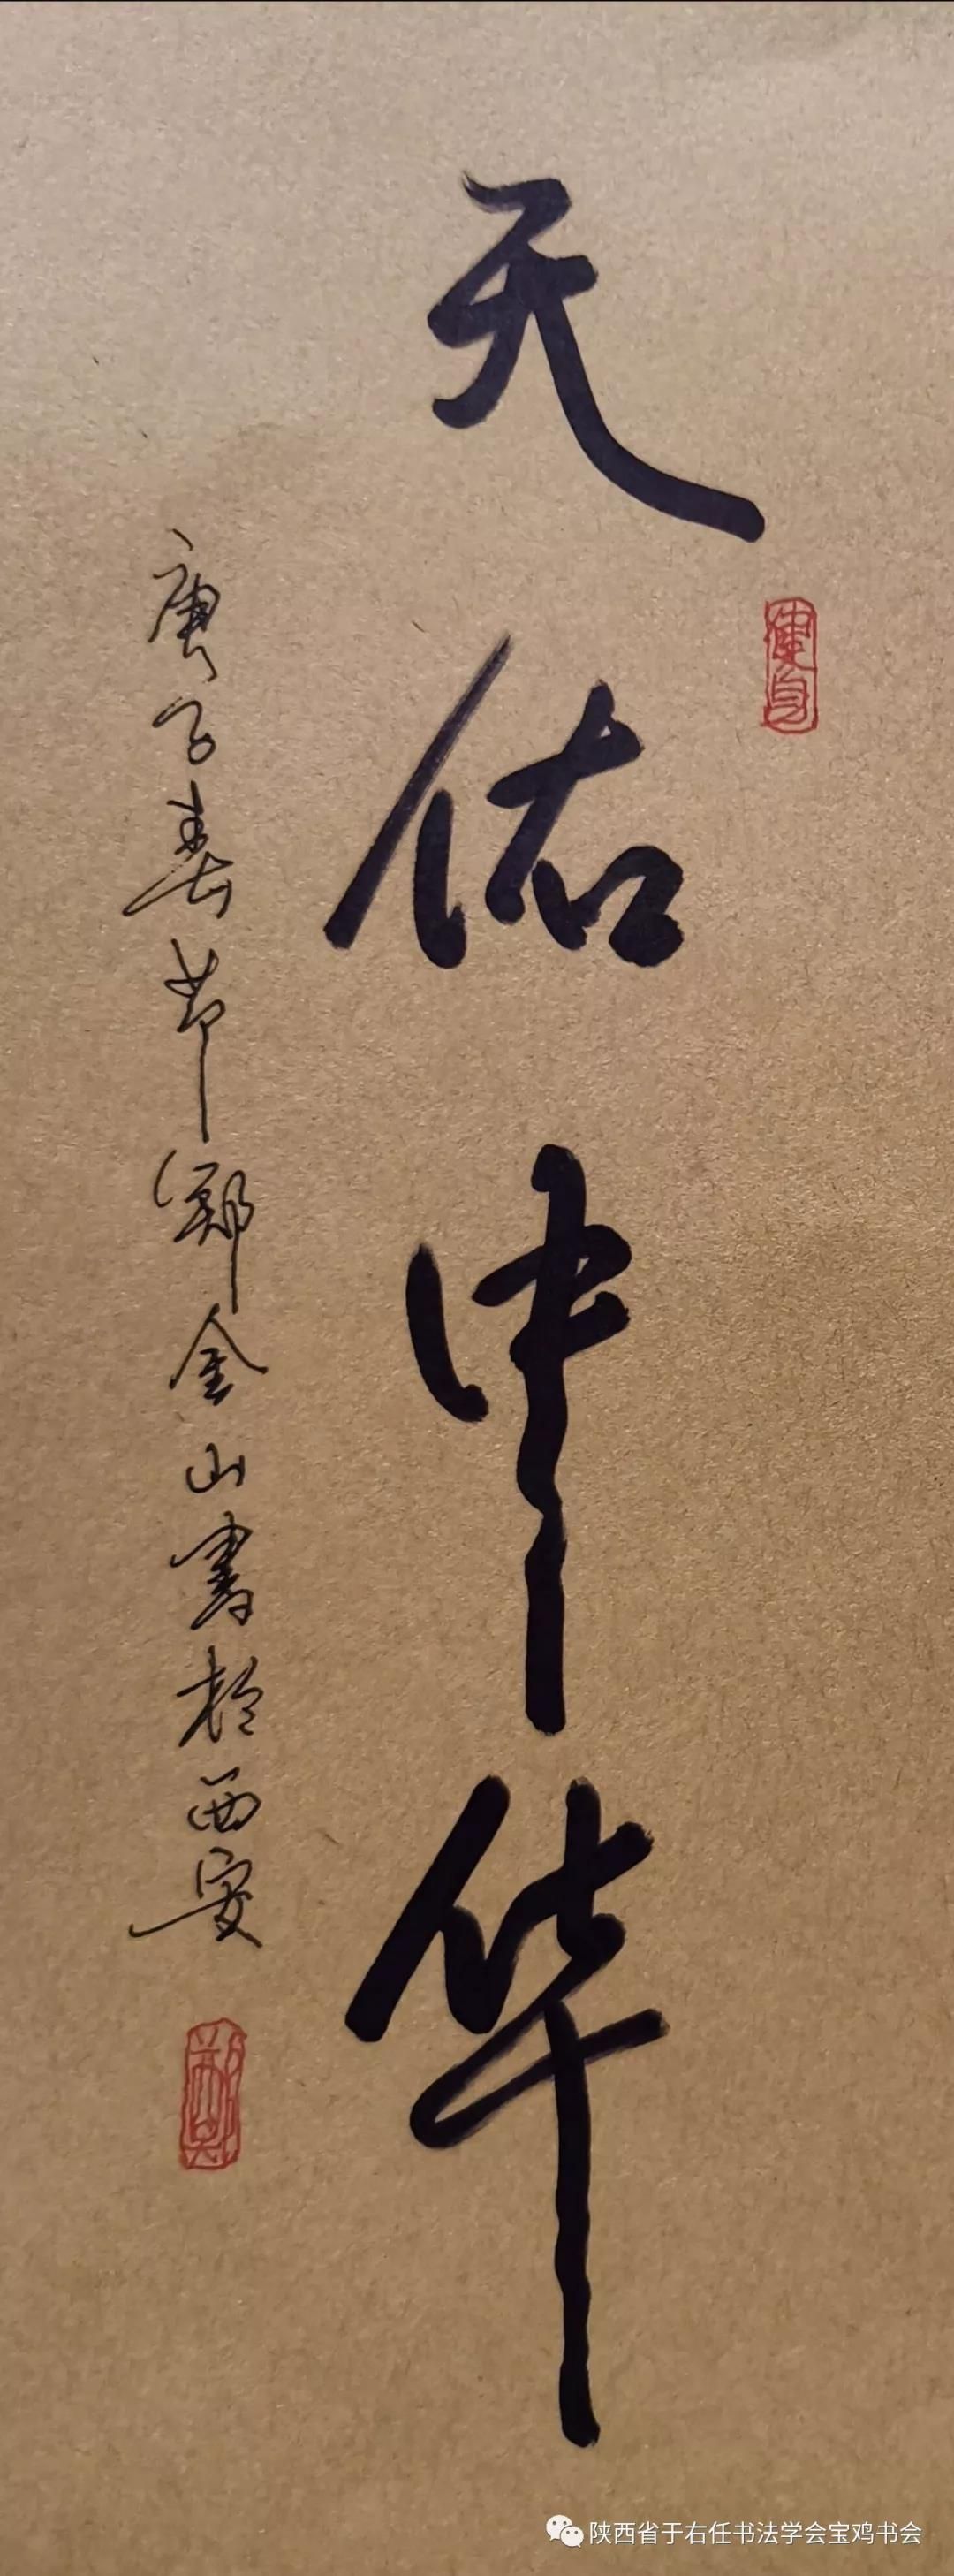 天佑中华
健身
庚子春节郑金山書於西安
郑
陕西省于右任书法学会宝鸡书会